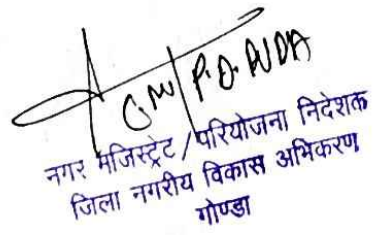 CM/P.D. DUDA
नगर मजिस्ट्रेट / परियोजना निदेशक
जिला नगरीय विकास अभिकरण
गोण्डा